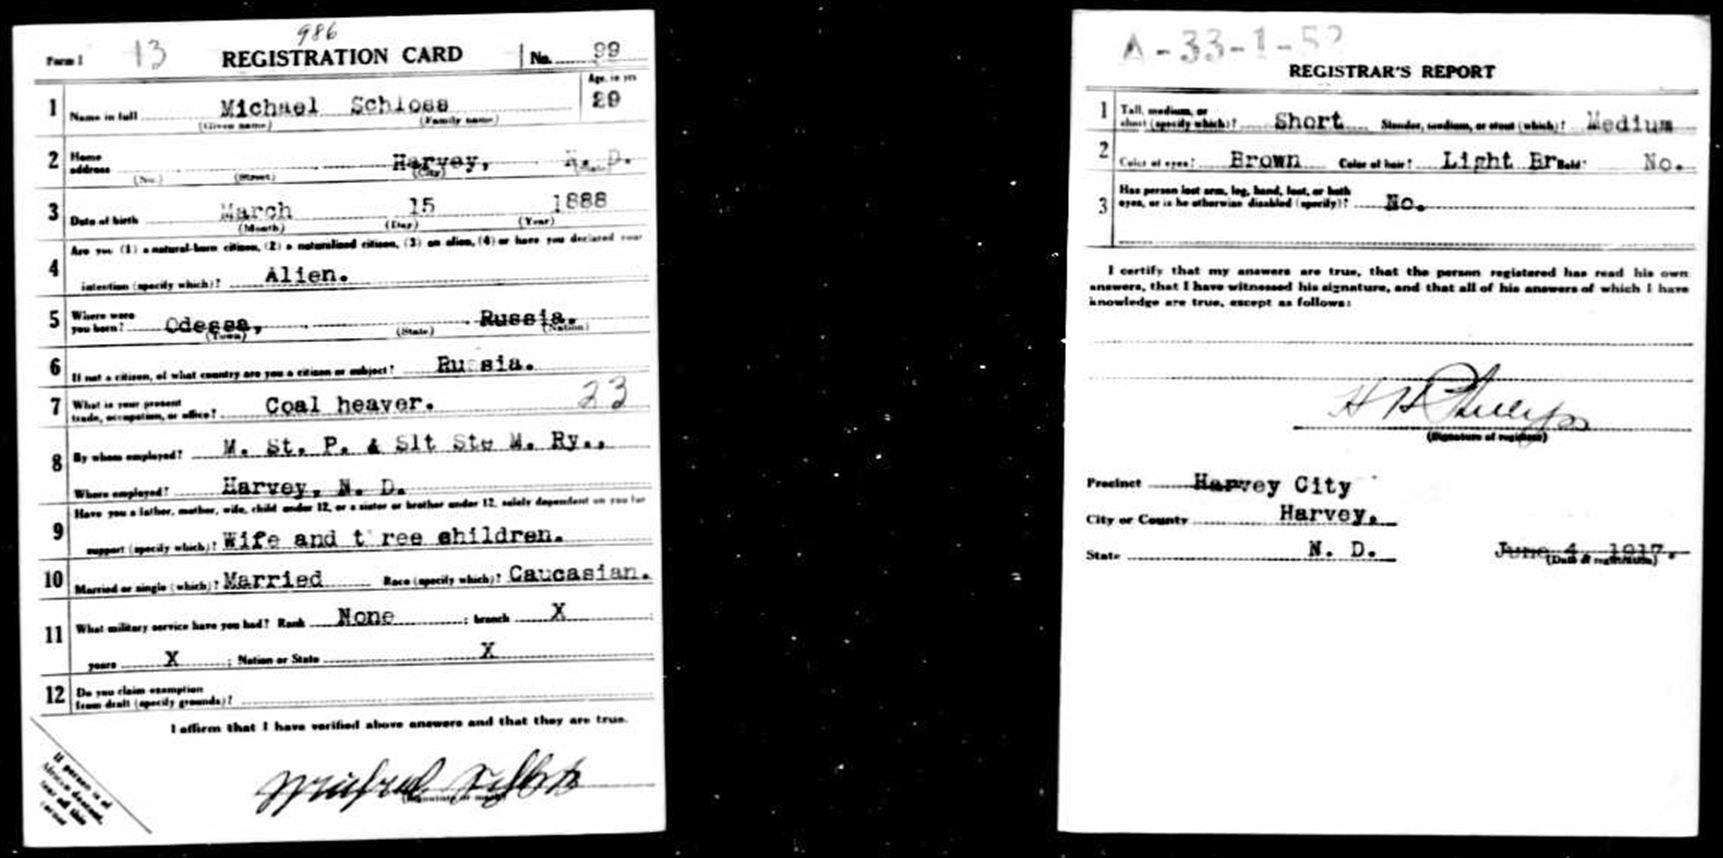 986
Form 1 13 REGISTRATION CARD No. 99
1 Name in full Michael Schloss Age, in yrs 29
(Given name) (Family name)
2 Home address Harvey, N. D.
(No.) (Street) (City) (State)
3 Date of birth March 15 1888
(Month) (Day) (Year)
4 Are you (1) a natural-born citizen, (2) a naturalized citizen, (3) an alien, (4) or have you declared your
intention (specify which)? Alien.
5 Where were you born? Odessa, Russia.
(Town) (State) (Nation)
6 If not a citizen, of what country are you a citizen or subject? Ru sia.
7 What is your present trade, occupation, or office? Coal heaver. 23
8 By whom employed? M. St. P. & Slt Ste M. Ry.,
Where employed? Harvey, N. D.
9 Have you a father, mother, wife, child under 12, or a sister or brother under 12, solely dependent on you for
support (specify which)? Wife and t ree children.
10 Married or single (which)? Married Race (specify which)? Caucasian.
11 What military service have you had? Rank None ; branch X ;
years X ; Nation or State X
12 Do you claim exemption
from draft (specify grounds)?
I affirm that I have verified above answers and that they are true.
(Signature or mark)
If person is of
African descent,
tear off this
corner
A-33-1-52
REGISTRAR'S REPORT
1 Tall, medium, or
short (specify which)? Short Slender, medium, or stout (which)? Medium
2 Color of eyes? Brown Color of hair? Light Br Bald? No.
3 Has person lost arm, leg, hand, foot, or both
eyes, or is he otherwise disabled (specify)? No.
I certify that my answers are true, that the person registered has read his own
answers, that I have witnessed his signature, and that all of his answers of which I have
knowledge are true, except as follows:
(Signature of registrar)
Precinct Harvey City
City or County Harvey.
State N. D. June 4, 1917.
(Date of registration)